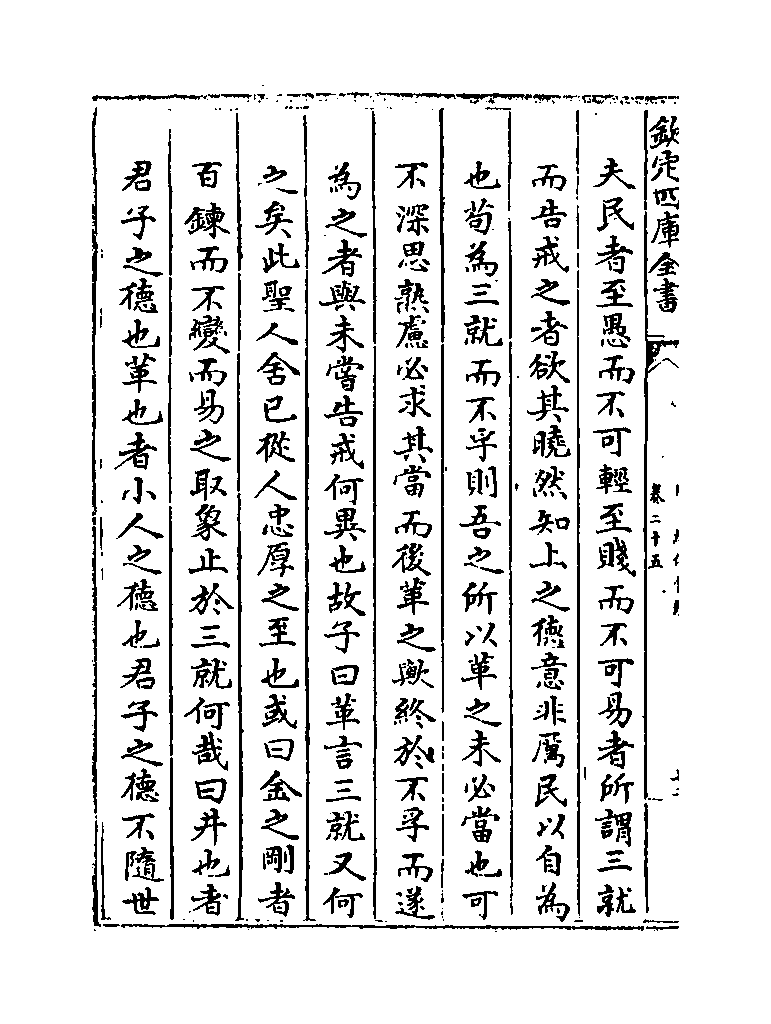 欽定四庫全書
卷二十五
夫民者至愚而不可輕至賤而不可易者所謂三就
而告戒之者欲其曉然知上之德意非厲民以自為
也苟為三就而不孚則吾之所以革之未必當也可
不深思熟慮必求其當而後革之歟終於不孚而遂
為之者與未嘗告戒何異也故子曰革言三就又何
之矣此聖人舍已從人忠厚之至也或曰金之剛者
百鍊而不變而易之取象止於三就何哉曰井也者
君子之德也革也者小人之德也君子之德不隨世